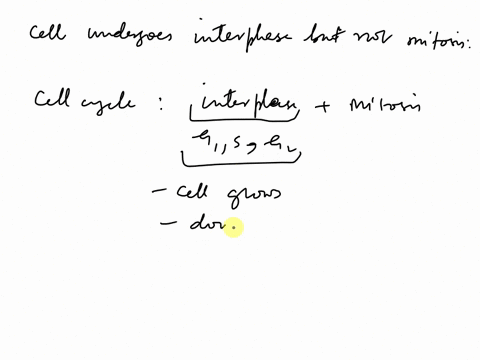 Cell undergoes interphase but not mitosis:
Cell cycle : interphase + mitosis
G1, S, G2
- cell grows
- dov